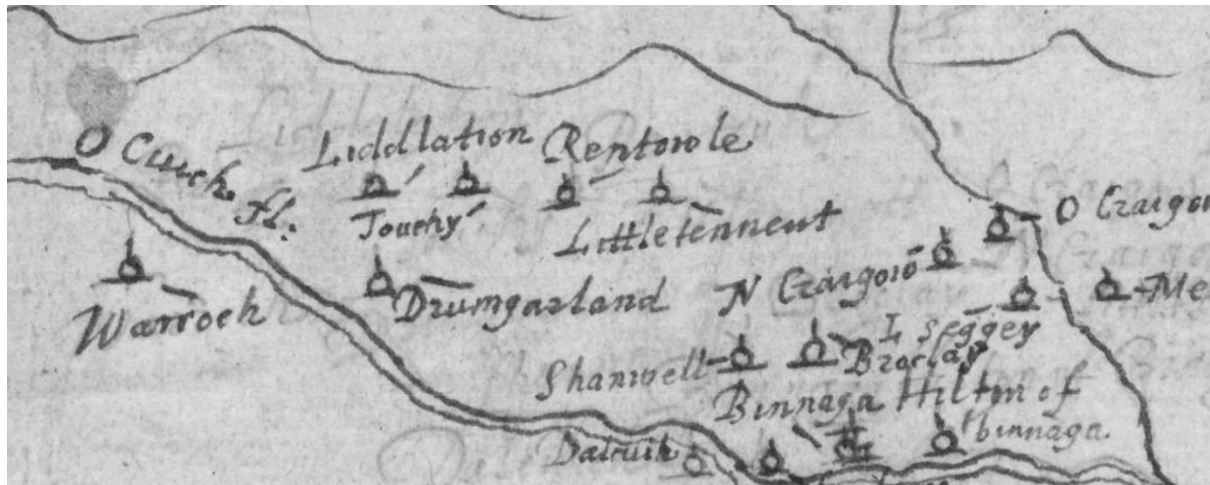 Liddlation
Rentowle
O Cuich fl.
Touchy
Littletennent
O Craigow
Warroch
Drumgarland
N Craigow
Me
L seggey
Shanwell
Broclay
Binnaga
Hilton of
binnaga
Dalcuih